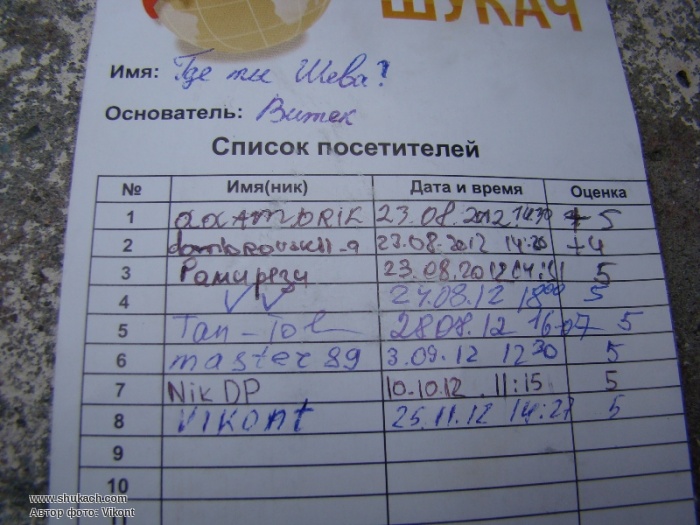 ШУКАЧ
Имя: Где ты Шева?
Основатель: Витек
Список посетителей
№ Имя(ник) Дата и время Оценка
1 23.08.2012 14:30 + 5
2 23.08.2012 14:20 +4
3 Рамиреzи 23.08.2012 5
4 VV 24.08.12 18:00 5
5 Tan-Tol 28.08.12 16-07 5
6 master89 3.09.12 12:30 5
7 NikDP 10.10.12 11:15 5
8 Vikont 25.11.12 14:27 5
9
10
11
www.shukach.com
Автор фото: Vikont